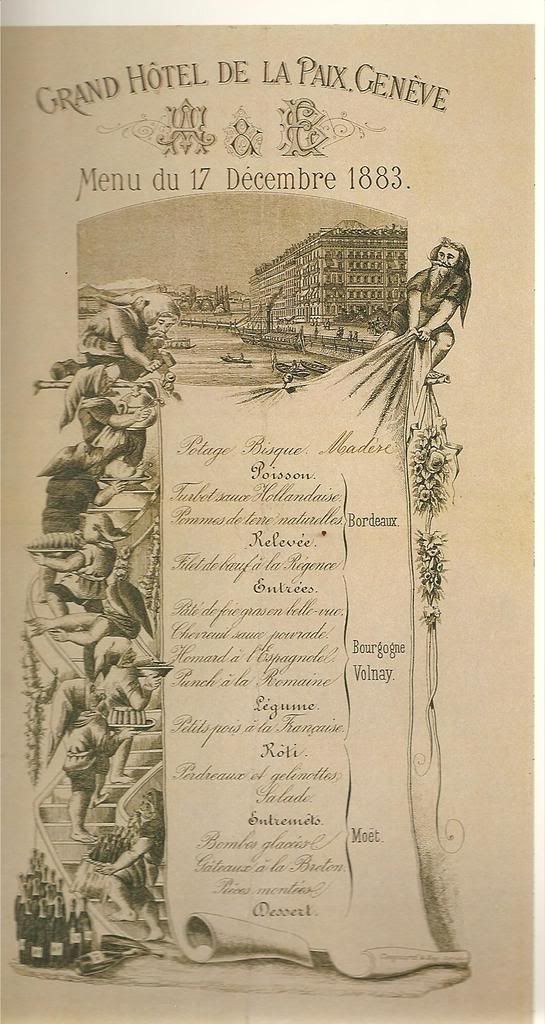 GRAND HÔTEL DE LA PAIX, GENÈVE
&
Menu du 17 Décembre 1883.
Potage Bisque. Madère
Poisson.
Turbot sauce Hollandaise.
Pommes de terre naturelles.
Bordeaux.
Relevée.
Filet de bœuf à la Régence
Entrées.
Pâté de foie gras en belle-vue.
Chevreuil sauce poivrade.
Homard à l'Espagnole.
Punch à la Romaine
Bourgogne
Volnay.
Légume.
Petits pois à la Française.
Rôti.
Perdreaux et gelinottes,
Salade.
Entremêts.
Bombes glacées
Gâteaux à la Breton.
Pièces montées
Dessert.
Moët.